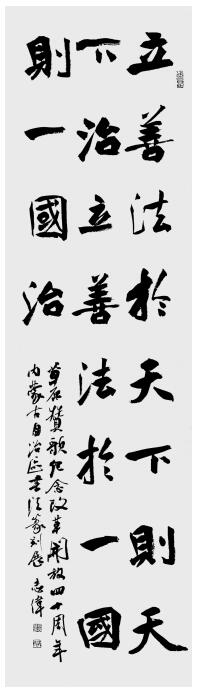 立善法於天下則天
下治立善法於一國
則一國治
草原赞歌纪念改革開放四十周年
内蒙古自治區书法篆刻展 志偉